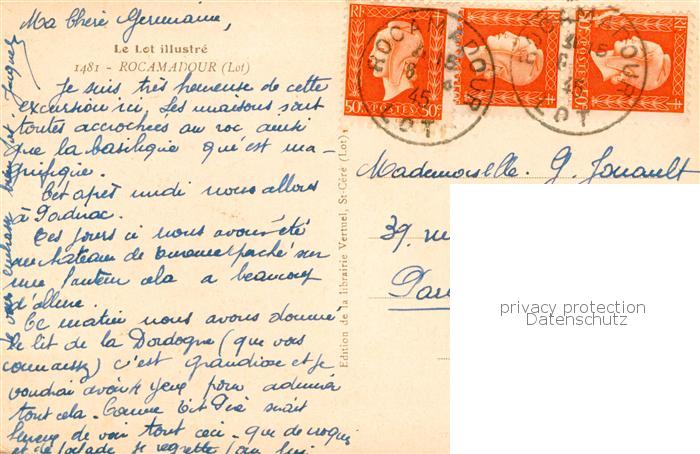 Ma Chère Germaine,
Le Lot illustré
1481 - ROCAMADOUR (Lot)
Je suis très heureuse de cette
excursion ici. Les maisons sont
toutes accrochées au roc ainsi
que la basilique qu'est ma-
gnifique.
Cet après midi nous allons
à
Ces jours ci nous avons été
au chateau de perché sur
une hauteur cela a beaucoup
d'allure.
Ce matin nous avons
le lit de la Dordogne (que vous
connaissez) c'est grandiose et je
voudrai avoir yeux pour admirer
tout cela. Comme serait
heureux de voir tout ceci - que de croquis
et de je regrette
vous embrasse bien fort Jacques
Edition de la librairie Vertuel, St-Céré (Lot)
RF
50c POSTES 50c
RF
RF
50c POSTES
ROCAMADOUR
15
8
45
LOT
ROCAMADOUR
15
45
LOT
Mademoiselle G. Jouault
39, rue
privacy protection
Datenschutz